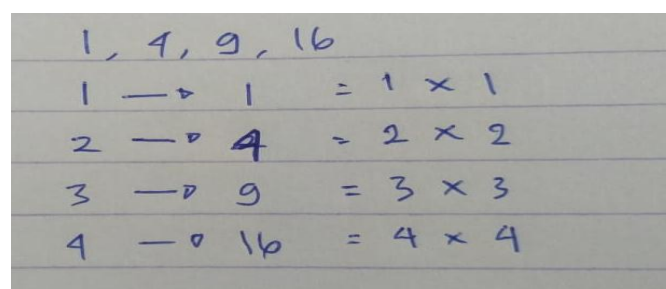 1, 4, 9, 16
1 → 1 = 1 × 1
2 → 4 = 2 × 2
3 → 9 = 3 × 3
4 → 16 = 4 × 4